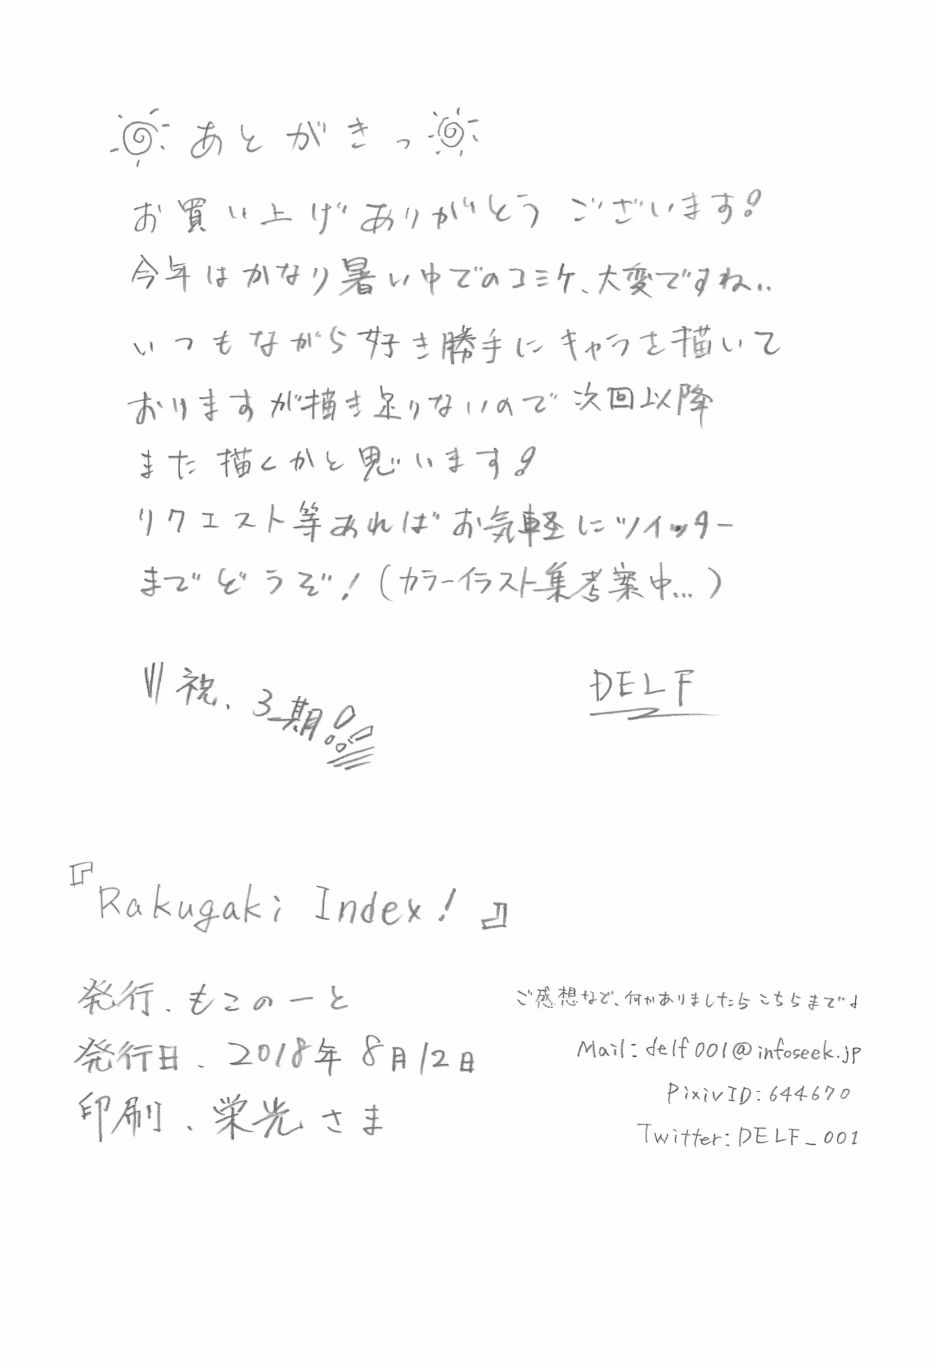 あとがきっ
お買い上げありがとうございます!
今年はかなり暑い中でのコミケ、大変ですね..
いつもながら好き勝手にキャラを描いて
おりますが描き足りないので次回以降
また描くかと思います!
リクエスト等あればお気軽にツイッター
までどうぞ!(カラーイラスト集考案中...)
\\\祝、3期!!
DELF
『Rakugaki Index!』
発行、もこのーと
発行日、2018年8月12日
印刷、栄光さま
ご感想など、何かありましたらこちらまで♩
Mail:delf001@infoseek.jp
PixivID:644670
Twitter:DELF_001